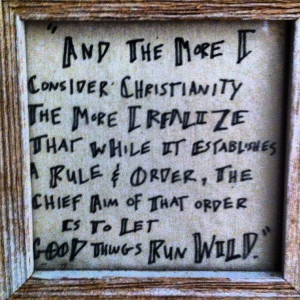 "And The More I
Consider Christianity
The More I Realize
That While It Establishes
A Rule & Order, The
Chief Aim of That Order
Is To Let
Good Things Run Wild."